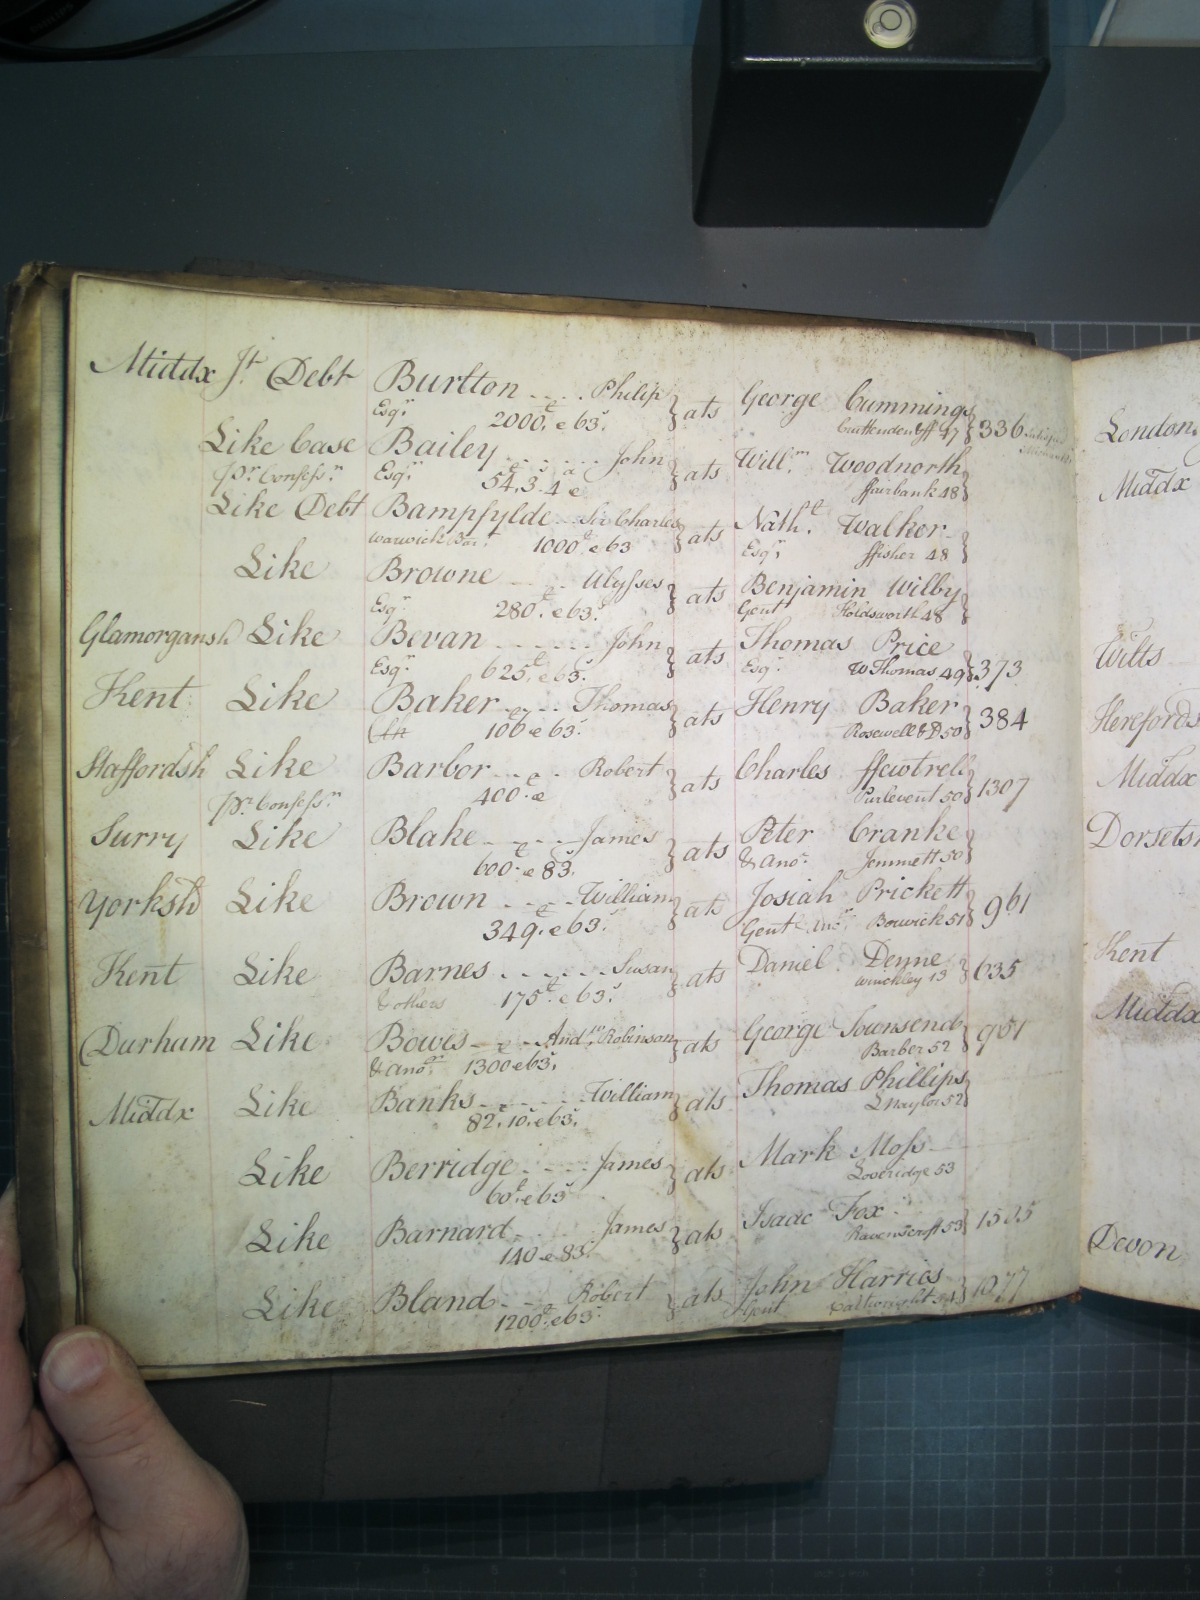 Middx Jt. Debt Burlton .... Philip } ats George Cummings } 336
Esqr. 2000£. e 63s. Cruttenden & ff 47
Like Case Bailey ...... John } ats Willm. Woodnorth }
pr. Confessn. Esqr. 54£.3s.4d e ffairbank 48
Like Debt Bampfylde Sir Charles } ats Nathl. Walker }
Warwick Bart. 1000£. e 63 Esqr. ffisher 48
Like Browne .... Ulysses } ats Benjamin Wilby }
Esqr. 280£. e 63s. Gent Holdsworth 48
Glamorgansh Like Bevan ...... John } ats Thomas Price } 373
Esqr. 625£. e 63s. Esqr. W Thomas 49
Kent Like Baker .... Thomas } ats Henry Baker } 384
100 e 63s. Rosewell & D 50
Staffordsh Like Barbor .... Robert } ats Charles ffewtrell } 1307
pr. Confessn. 400£. e Purlevent 50
Surry Like Blake .... James } ats Peter Cranke }
600£. e 83s. & anor. Jemmett 50
Yorksh Like Brown .... William } ats Josiah Prickett } 961
349£. e 63s. Gent Borwick 51
Kent Like Barnes ...... Susan } ats Daniel Denne } 635
& others 175£. e 63s. Winchley 13
Durham Like Bowes .. Andw. Robinson } ats George Townsend } 951
& anor. 1300 e 63s. Barber 52
Middx Like Banks ...... William } ats Thomas Phillips }
82£.10s. e 63s. L Naylor 52
Like Berridge .... James } ats Mark Moss
60£. e 63s Loveridge 53
Like Barnard .... James } ats Isaac Fox } 1505
140 e 83s. Ravenscroft 53
Like Bland .... Robert } ats John Harries } 1077
1200£. e 63s. Gent Cartwright
London
Middx
Wilts
Herefords
Middx
Dorsetsh
Kent
Middx
Devon